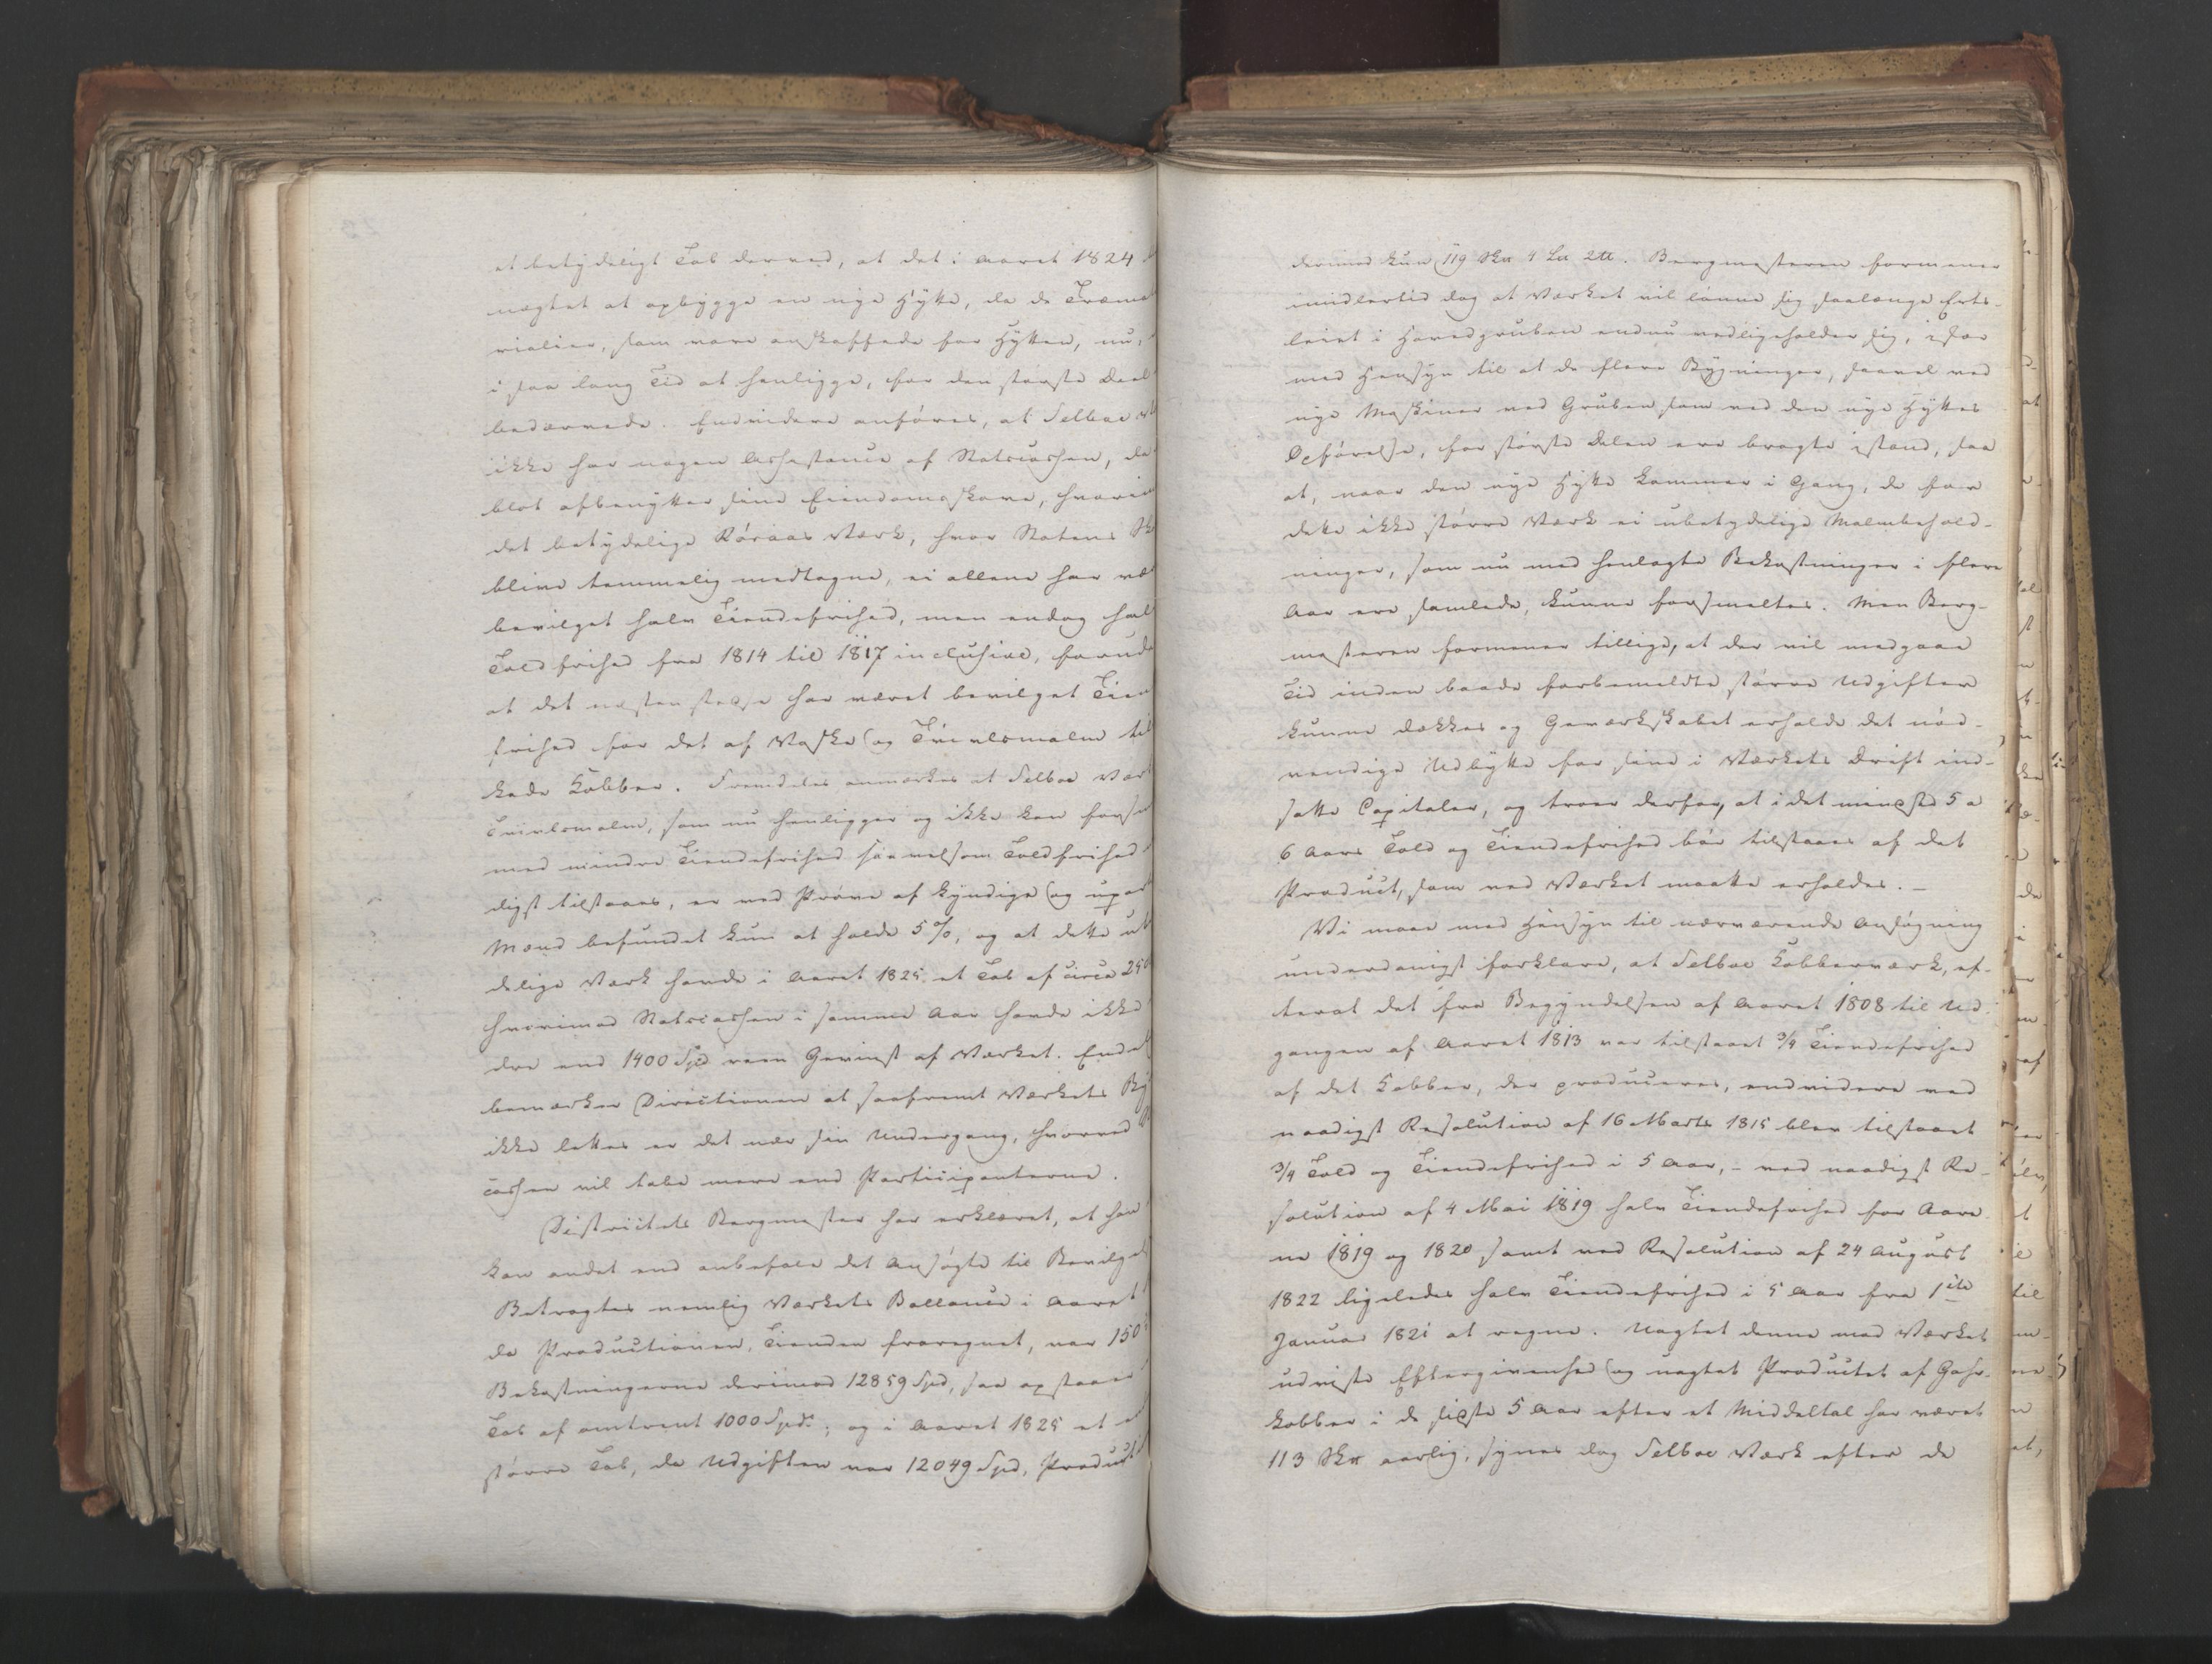 et betydeligt Tab derved, at det i Aaret 1824
nægtet at opbygge en nye Hytte, da de Træma
rialier, som vare anskaffede for Hytten, nu,
i saa lang Tid at henligge, for den største Deel
bedærvede. Endvidere anføres, at Selboe
ikke har nogen Assistance af Statscassen, da
blot afbenytter sine Eiendomsskove, hvorim
det betydelige Röraas Værk, hvor Statens Sk
blive temmelig medtagne, ei allene har væ
bevilget halv Tiendefrihed, men endog hal
Toldfrihed fra 1814 til 1817 inclusive, forude
at det næsten stedse har været bevilget Tien
frihed for det af Vaske og Tvivlsmalm til
kede Kobber. Fremdeles anmærkes at Selboe Vær
Tvivlsmalm, som nu henligger og ikke kan forsm
med mindre Tiendefrihed saavelsom Toldfrihed
digst tilstaaes, er ved Prøve af kyndige og upar
Mænd befundet kun at holde 5 %, og at dette ub
delige Værk havde i Aaret 1825 et Tab af circa 250
hvorimod Statscassen i samme Aar havde ikke
dre end 1400 Spd reen Gevinst af Værket. Endel
bemærker Directionen at saafremt Værkets By
ikke lettes er det nær sin Undergang, hvorved
cassen vil tabe mere end Participanterne.
Districtets Bergmester har erklæret, at han
kan andet end anbefale det Ansøgte til Bevilgel
Betragtes nemlig Værkets Ballance i Aaret
da Productionen, Tienden fraregnet, var 150
Bekostningerne derimod 12859 Spd, saa opstaaer
Tab af omtrent 1000 Spd; og i Aaret 1825 et
större Tab, da Udgiften var 12049 Spd, Product
derimod kun 119 Sk℔ 4 L℔ 2 ℔. Bergmesteren formener
imidlertid dog at Værket vil lønne sig saalænge Erts-
leiet i Hovedgruben endnu vedligeholder sig, især
med Hensyn til at de flere Bygninger, saavel ved
nye Maskiner ved Gruben som ved den nye Hyttes
Opførelse, for største Delen ere bragte istand, saa
at, naar den nye Hytte kommer i Gang, de for
dette ikke større Værk ei ubetydelige Malmbehold-
ninger, som nu med henlagte Bekostninger i flere
Aar ere samlede, kunne forsmeltes. Men Berg-
mesteren formener tillige, at der vil medgaae
Tid inden baade forbemeldte større Udgifter
kunne dækkes og Gewærkskabet erholde det nød-
vendige Udbytte for sine i Værkets Drift ind-
satte Capitaler, og troer derfor, at i det mindste 5 a
6 Aars Told og Tiendefrihed bør tilstaaes af det
Product, som ved Værket maatte erholdes. –
Vi maae med Hensyn til nærværende Ansøgning
underdanigst forklare, at Selboe Kobberværk, ef-
terat det fra Begyndelsen af Aaret 1808 til Ud-
gangen af Aaret 1813 var tilstaaet 3/4 Tiendefrihed
af det Kobber, der produceres, endvidere ved
naadigst Resolution af 16 Marts 1815 blev tilstaaet
3/4 Told og Tiendefrihed i 5 Aar, – ved naadigst Re-
solution af 4 Mai 1819 halv Tiendefrihed for Aare-
ne 1819 og 1820, samt ved Resolution af 24 August
1822 ligeledes halv Tiendefrihed i 5 Aar fra 1ste
Januar 1821 at regne. Uagtet denne mod Værket
udviste Eftergivenhed og uagtet Productet af Gahr-
kobber i de sidste 5 Aar efter et Middeltal har været
113 Sk℔ aarlig, synes dog Selboe Værk efter de